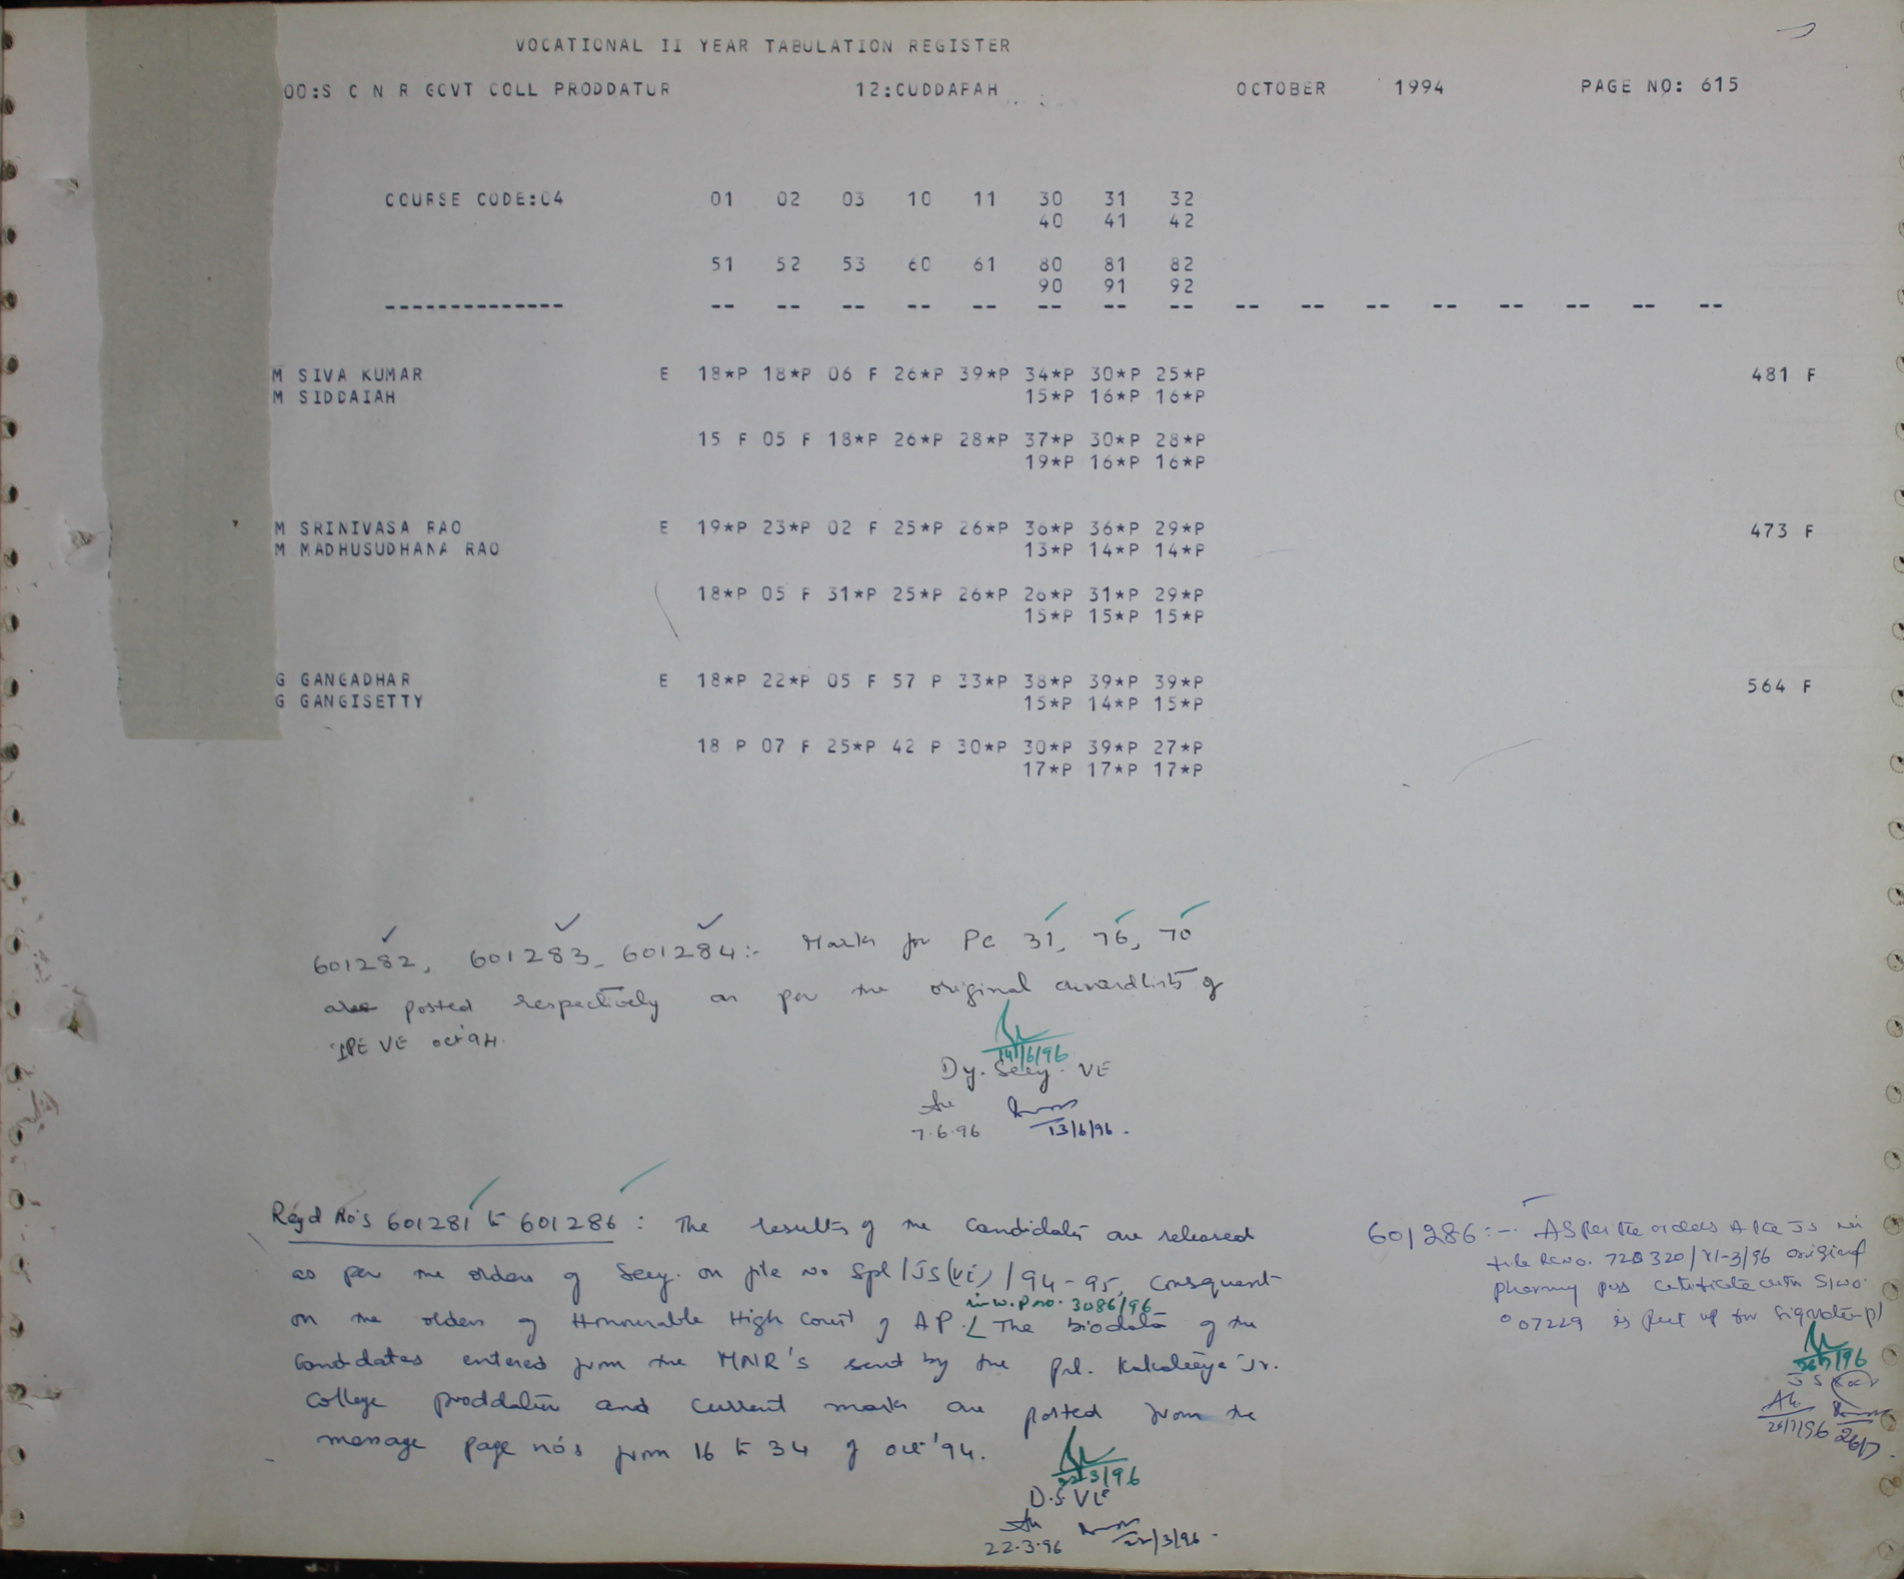 VOCATIONAL II YEAR TABULATION REGISTER
00:S C N R GOVT COLL PRODDATUR 12:CUDDAPAH OCTOBER 1994 PAGE NO: 615
COURSE CODE:04 01 02 03 10 11 30 31 32
40 41 42
51 52 53 60 61 80 81 82
90 91 92
-------------- -- -- -- -- -- -- -- -- -- -- -- -- -- -- -- --
M SIVA KUMAR E 18*P 18*P 06 F 26*P 39*P 34*P 30*P 25*P 481 F
M SIDDAIAH 15*P 16*P 16*P
15 F 05 F 18*P 26*P 28*P 37*P 30*P 28*P
19*P 16*P 16*P
M SRINIVASA RAO E 19*P 23*P 02 F 25*P 26*P 36*P 36*P 29*P 473 F
M MADHUSUDHANA RAO 13*P 14*P 14*P
18*P 05 F 31*P 25*P 26*P 26*P 31*P 29*P
15*P 15*P 15*P
G GANGADHAR E 18*P 22*P 05 F 57 P 33*P 38*P 39*P 39*P 564 F
G GANGISETTY 15*P 14*P 15*P
18 P 07 F 25*P 42 P 30*P 30*P 39*P 27*P
17*P 17*P 17*P
601282, 601283, 601284:- Marks for PC 31, 76, 70
are posted respectively as per the original awardlists of
IPE VE oct'94.
14/6/96
Dy. Secy. VE
7.6.96 13/6/96.
Regd No's 601281 to 601286 : The results of the Candidates are released
as per the orders of Secy. on file no Spl/JS(VE)/94-95, Consquent
in W.P no. 3086/96
on the orders of Honourable High Court of AP. The biodata of the
Candidates entered from the MNR's sent by the prl. Kakateeya Jr.
College proddatur and current marks are posted from the
message page nos from 16 to 34 of oct'94.
22/3/96
D.S VE
22.3.96 22/3/96.
601286:- As per the orders of the JS in
file Rc no. 728320/V1-3/96 original
pharmacy pass certificate with Sl no.
007229 is put up for signature pl
26/7/96
JS
26/7/96 26/7